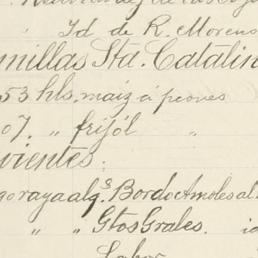 " Id de R. Moreno
millas Sta. Catalin
53 hls. maiz á peones
07. " frijól "
vientes:
goraya alg.s Bordo Amoles al
" " Gtos Grales.
Labor